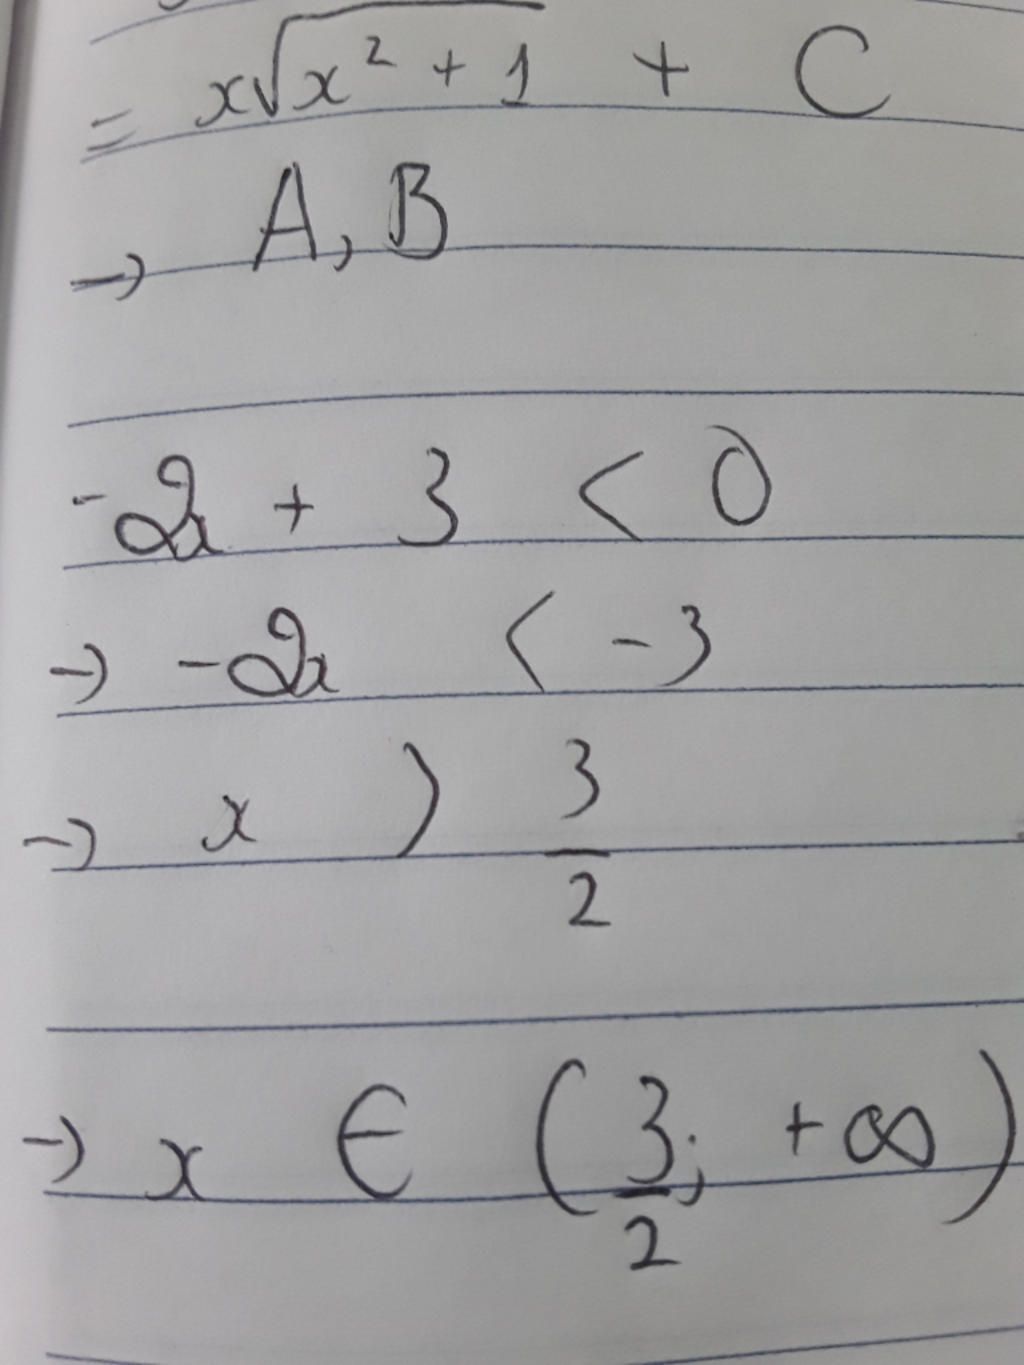 = x√(x² + 1) + C
→ A, B
-2x + 3 < 0
→ -2x < -3
→ x > 3/2
→ x ∈ (3/2; +∞)